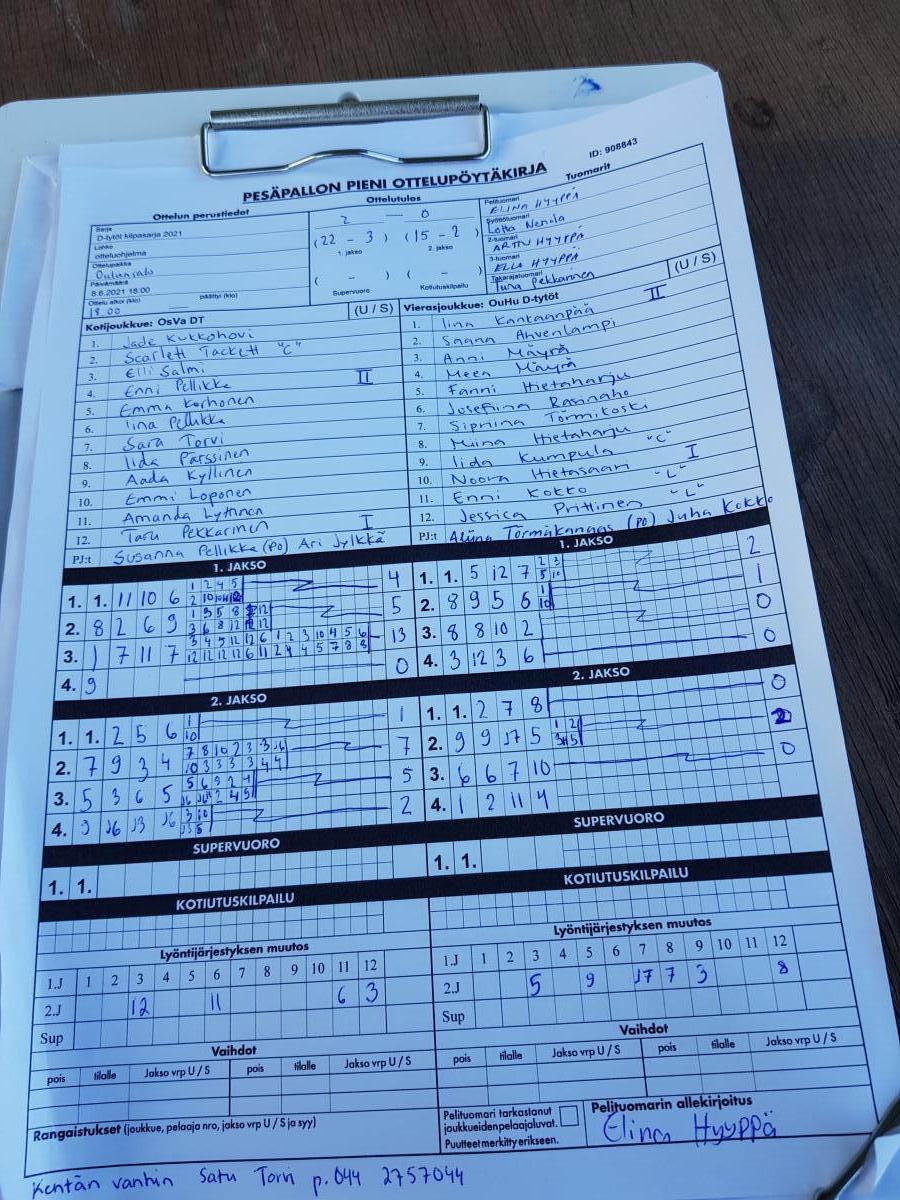 PESÄPALLON PIENI OTTELUPÖYTÄKIRJA
ID: 908843
Ottelun perustiedot
Sarja
D-tytöt kilpasarja 2021
Lohko
otteluohjelma
Ottelupaikka
Oulunsalo
Päivämäärä
8.6.2021 18:00
Ottelu alkoi (klo) päättyi (klo)
18.00
Ottelutulos
2 — 0
(22 - 3) (15 - 2)
1. jakso 2. jakso
( - ) ( - )
Supervuoro Kotiutuskilpailu
Tuomarit
Pelituomari
ELINA HYYPPÄ
Syöttötuomari
Lotta Nenola
2-tuomari
ARTTU HYYPPÄ
3-tuomari
ELLA HYYPPÄ
Takarajatuomari
Tuna Pekkarinen
Kotijoukkue: OsVa DT (U / S)
1. Jade Kukkohovi
2. Scarlett Tackett "C"
3. Elli Salmi
4. Enni Pellikka II
5. Emma Korhonen
6. Iina Pellikka
7. Sara Torvi
8. Iida Pärssinen
9. Aada Kyllinen
10. Emmi Loponen
11. Amanda Lyttinen
12. Taru Pekkarinen I
PJ:t Susanna Pellikka (PO) Ari Jylkkä
Vierasjoukkue: OuHu D-tytöt (U / S)
1. Iina Kankaanpää II
2. Saana Ahvenlampi
3. Anni Mäyrä
4. Meea Mäyrä
5. Fanni Hietaharju
6. Josefiina Rasinaho
7. Sipriina Törmikoski
8. Miina Hietaharju
9. Iida Kumpula "C"
10. Noora Hietasaari I
11. Enni Kokko "L"
12. Jessica Prittinen "L"
PJ:t Alina Törmäkangas (PO) Juha Kokko
1. JAKSO
1. 1. 11 10 6 4
2. 8 2 6 9 5
3. 1 7 11 7 13
4. 9 0
1. JAKSO
1. 1. 5 12 7 2
2. 8 9 5 6 1
3. 8 8 10 2 0
4. 3 12 3 6 0
2. JAKSO
1. 1. 2 5 6 1
2. 7 9 3 4 7
3. 5 3 6 5 5
4. 9 J6 J3 J6 2
2. JAKSO
1. 1. 2 7 8 0
2. 9 9 J7 5 2
3. 6 6 7 10 0
4. 1 2 11 4
SUPERVUORO
1. 1.
SUPERVUORO
1. 1.
KOTIUTUSKILPAILU
KOTIUTUSKILPAILU
Lyöntijärjestyksen muutos
1.J 1 2 3 4 5 6 7 8 9 10 11 12
2.J 12 11 6 3
Sup
Lyöntijärjestyksen muutos
1.J 1 2 3 4 5 6 7 8 9 10 11 12
2.J 5 9 J7 7 3 8
Sup
Vaihdot
pois tilalle Jakso vrp U / S pois tilalle Jakso vrp U / S
Vaihdot
pois tilalle Jakso vrp U / S pois tilalle Jakso vrp U / S
Rangaistukset (joukkue, pelaaja nro, jakso vrp U / S ja syy)
Pelituomari tarkastanut
joukkueiden pelaajaluvat.
Puutteet merkitty erikseen.
Pelituomarin allekirjoitus
Elina Hyyppä
Kentän vanhin Satu Torvi p. 044 2757044